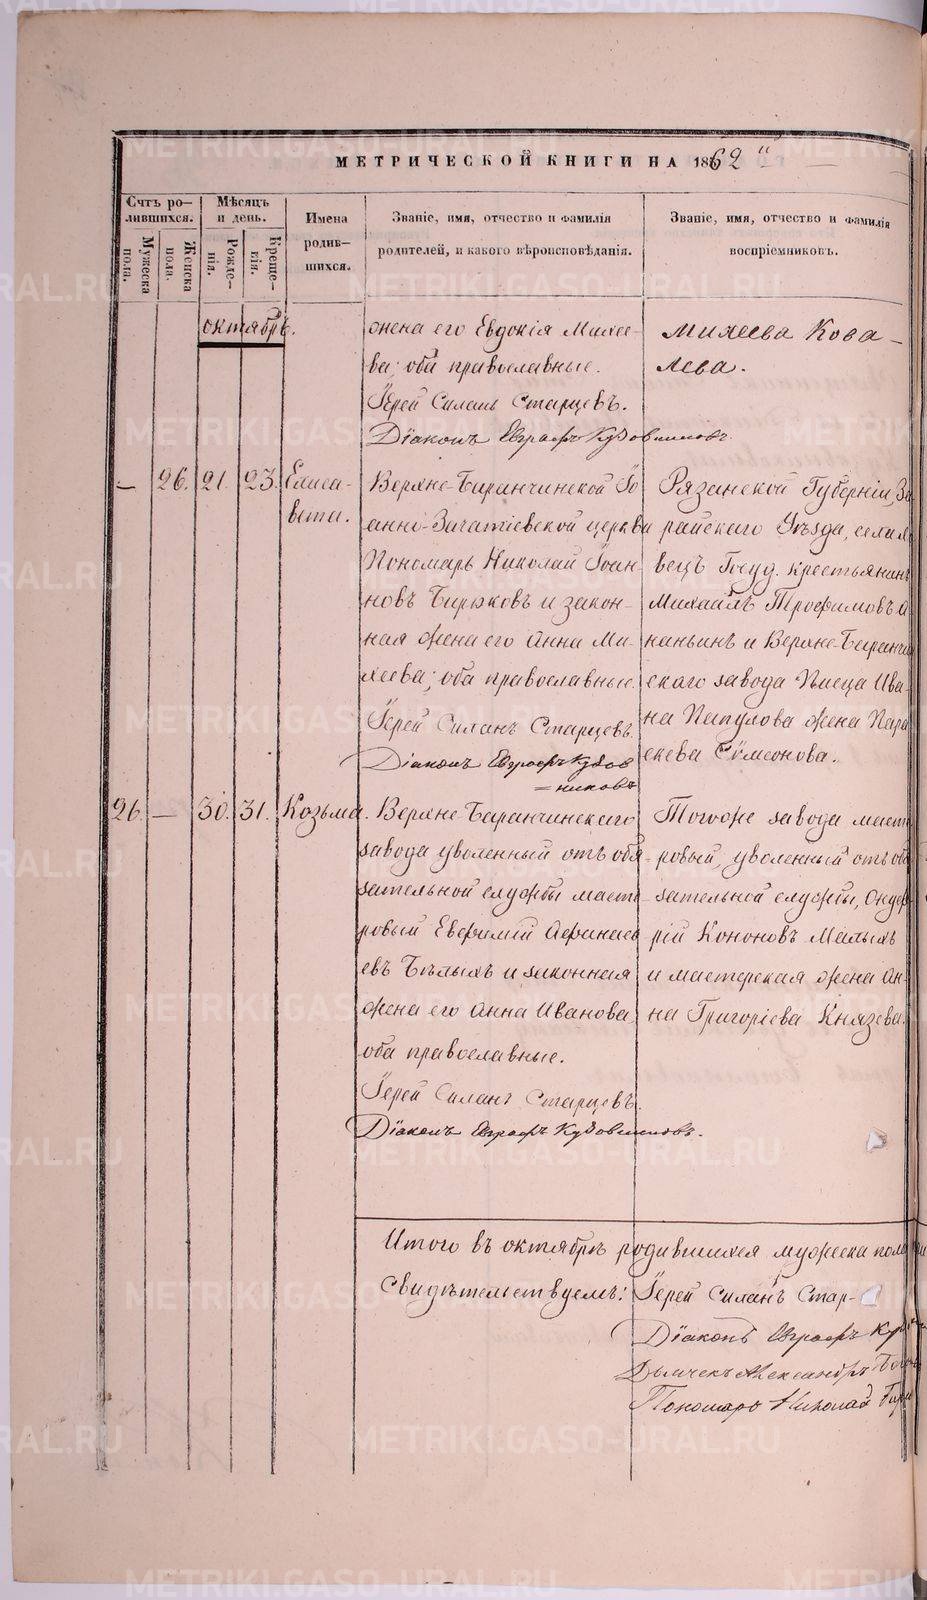 МЕТРИЧЕСКОЙ КНИГИ НА 1862й
Счтъ ро-
лившихся.
Мужеска
пола.
Женска
пола.
Мѣсяцъ
и день.
Рожде-
нія.
Креще-
нія.
Имена
родив-
шихся.
Званіе, имя, отчество и фамилія
родителей, и какого вѣроисповѣданія.
Званіе, имя, отчество и фамилія
воспріемниковъ.
октябрь.
жена его Евдокія Михее-
ва; оба православные.
Іерей Силанъ Старцевъ.
Діаконъ Евграфъ Кудовшиковъ.
Михеева Кова-
лева.
— 26. 21. 23. Елиса-
вета.
Верхне-Баранчинской Іо
анно-Зачатіевской церкви
Пономарь Николай Іоан-
новъ Бирюковъ и закон-
ная жена его Анна Ми-
хеева; оба православные.
Іерей Силанъ Старцевъ.
Діаконъ Евграфъ Кудов
=никовъ
Рязанской Губерніи, За
райскаго Уѣзда,
вецъ Госуд. крестьянинъ
Михаилъ Трофимовъ А
наньинъ и Верхне-Баранчин
скаго завода Писца Ива-
на Пипулова жена Пара
скева Сѵмеонова.
26. — 30. 31. Козьма.
Верхне-Баранчинскаго
завода уволенный отъ обя-
зательной службы масте-
ровый Евфимій Афанасъ
евъ Бѣлыхъ и законная
жена его Анна Иванова,
оба православные.
Іерей Силанъ Старцевъ.
Діаконъ Евграфъ Кудовшиковъ.
Тогоже завода масте
ровый, уволенный отъ обя
зательной службы,
рій Кононовъ Малыхъ
и мастерская жена Ан-
на Григоріева Князева.
Итого въ октябрѣ родившихся мужеска пола
Свидѣтельствуемъ: Іерей Силанъ Стар-
Діаконъ Евграфъ Ку
Дьячекъ Александръ
Пономарь Николай Бирю
METRIKI.GASO-URAL.RU